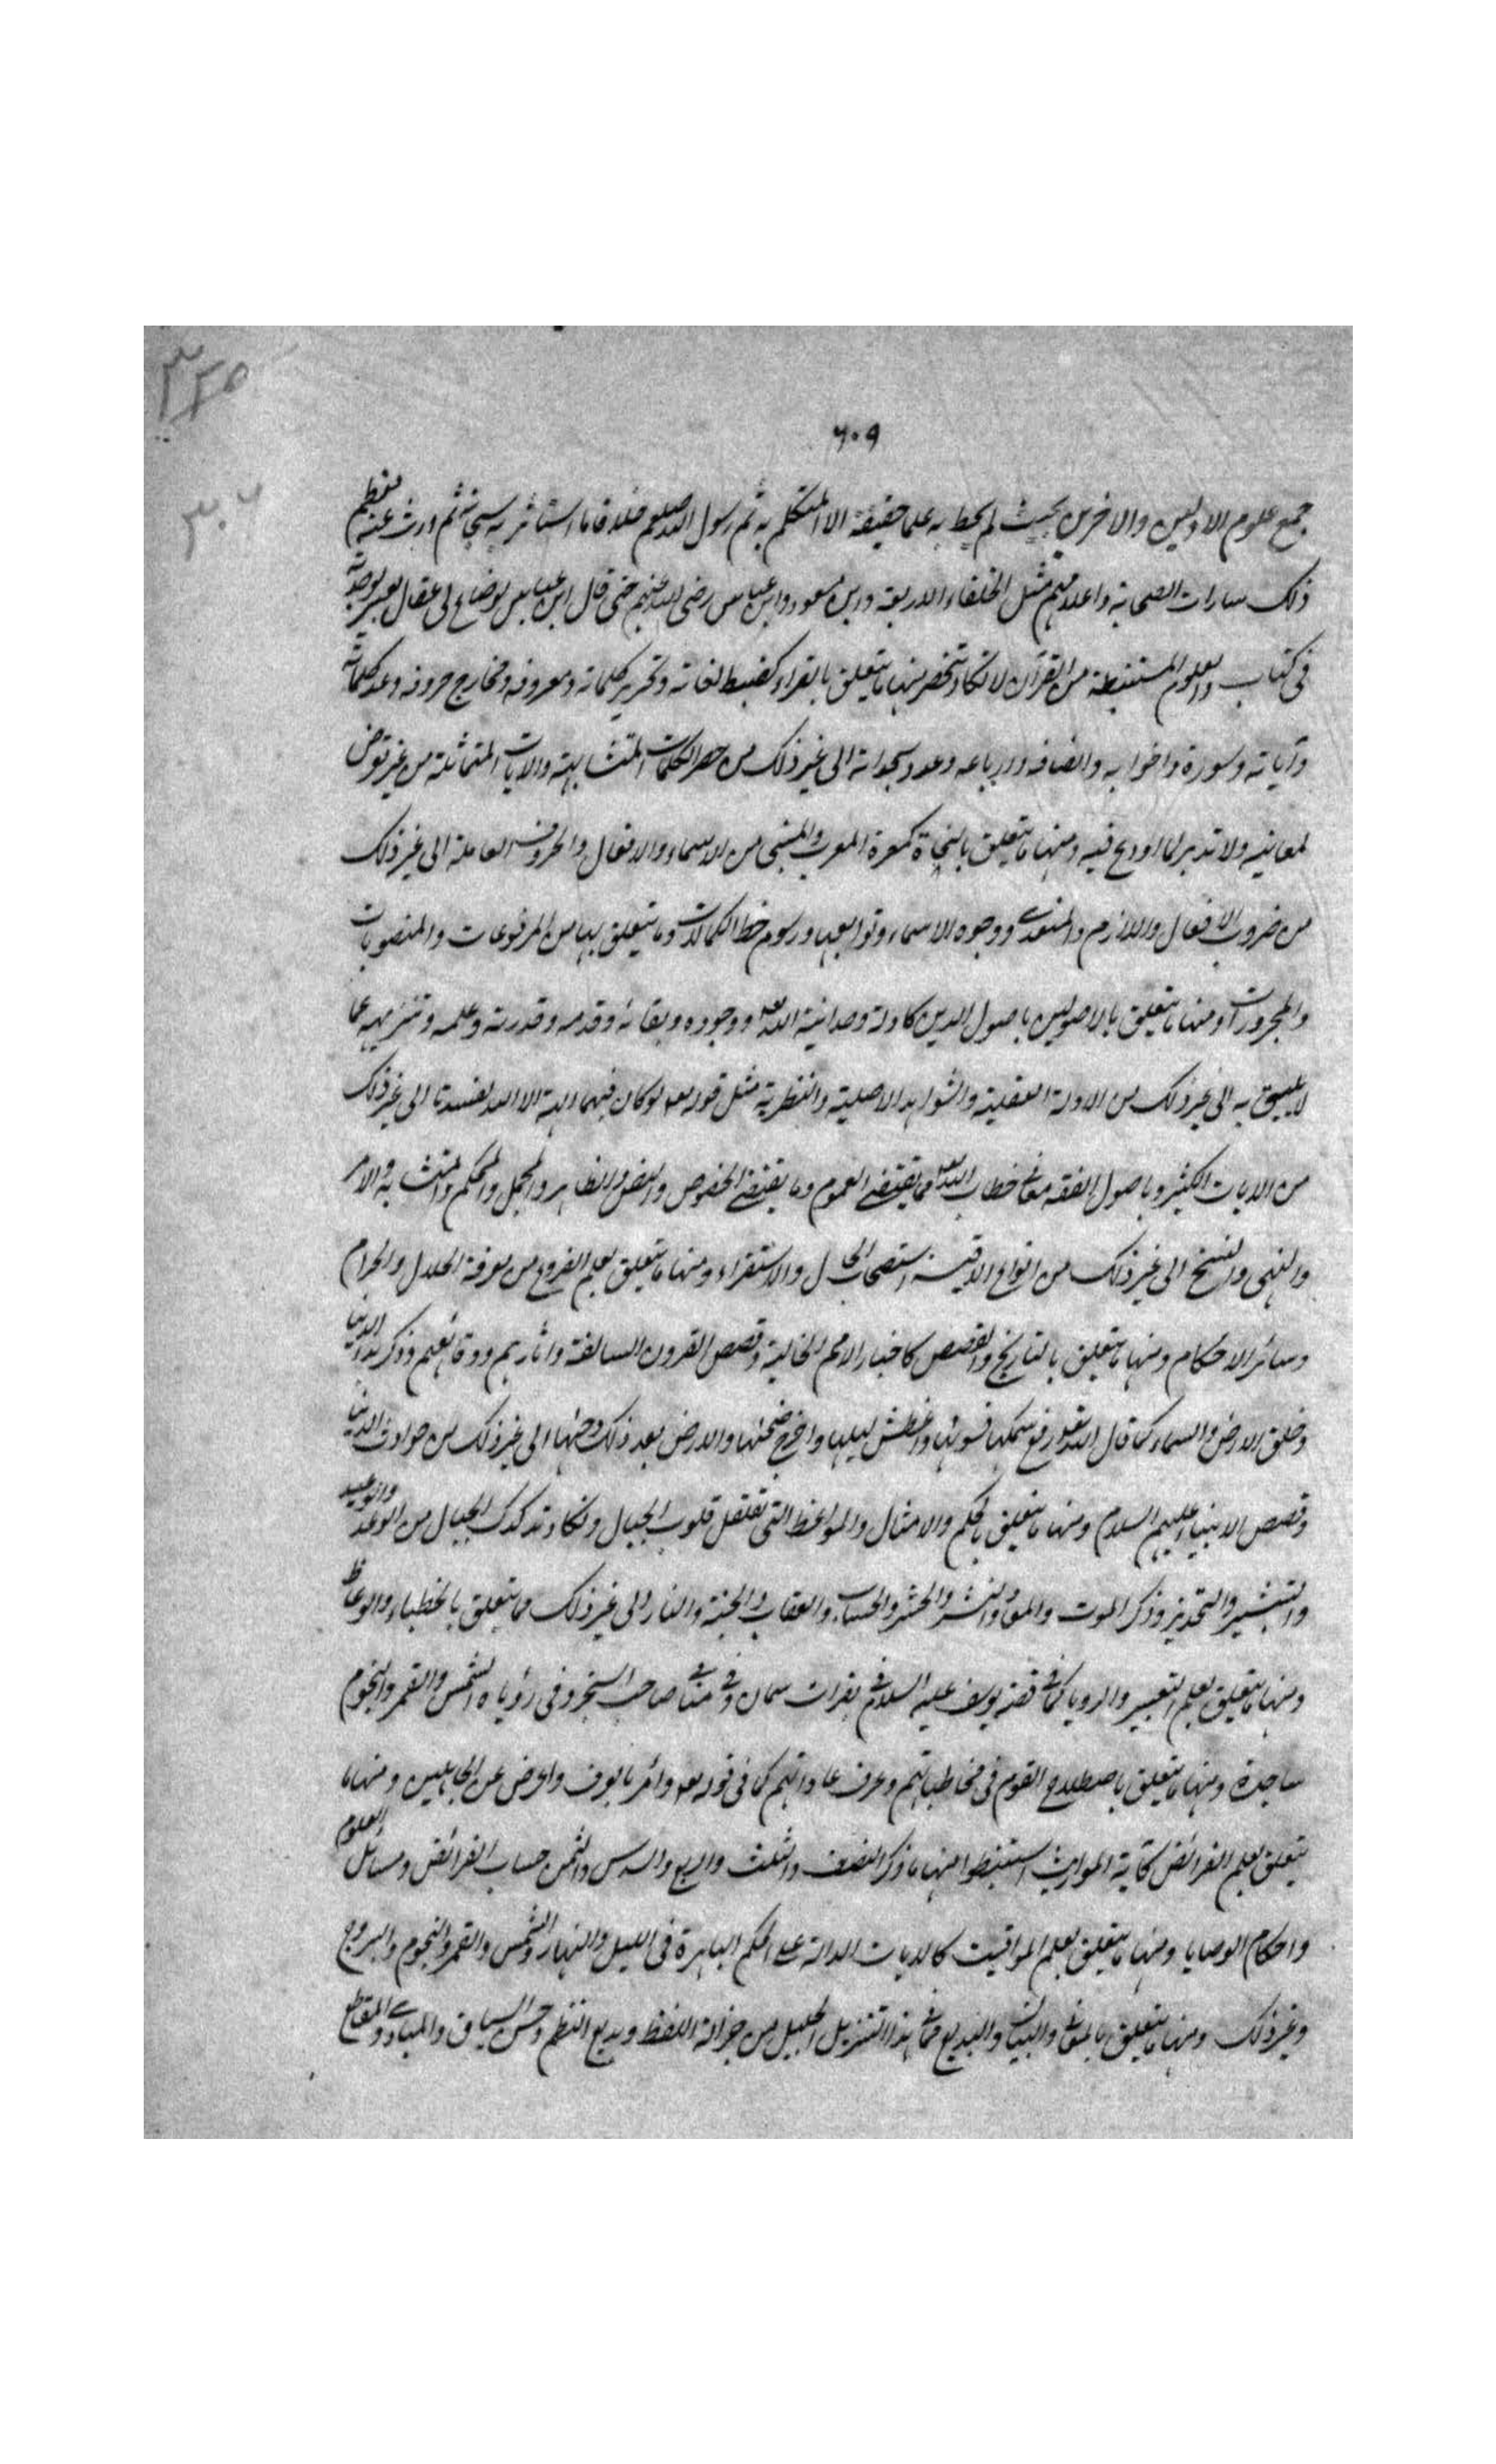 ٣٤٥
٣٠٦
٦٠٩
جمع علوم الاولين والاخرين بحيث لم يحط به علما حقيقة الا المتكلم به ثم رسول الله صلعم خلا ما استاثر به سبحانه ثم ورث عنه معظم
ذلك سادات الصحابة واعلامهم مثل الخلفاء الاربعة وابن مسعود وابن عباس رضى الله عنهم حتى قال ابن عباس لوضاع لى عقال بعير لوجدته
فى كتاب والعلوم المستنبطة من القرآن لا تكاد تنحصر منها ما يتعلق بالقراء كضبط لغاته وتحرير كلماته ومعرفة مخارج حروفه وعدد كلماته
وآياته وسوره واحزابه وانصافه وارباعه وعدد سجداته الى غير ذلك من حصر الكلمات المتشابهة والايات المتماثلة من غير تعرض
لمعانيه ولا تدبر لما اودع فيه ومنها ما يتعلق بالنحاة كمعرفة المعرب والمبنى من الاسماء والافعال والحروف العاملة الى غير ذلك
من ضروب الافعال واللازم والمتعدى ووجوه الاسماء وتوابعها ورسوم خط الكلمات وما يتعلق بها من المرفوعات والمنصوبات
والمجرورات ومنها ما يتعلق بالاصولين باصول الدين كادلة وحدانية الله تعه ووجوده وبقائه وقدمه وقدرته وعلمه وتنزيهه عما
لا يليق به الى غير ذلك من الادلة العقلية والشواهد الاصلية والنظرية مثل قوله تعه لوكان فيهما الهة الا الله لفسدتا الى غير ذلك
من الايات الكثير وباصول الفقه معانى خطاب الله تعه مما يقتضى العموم وما يقتضى الخصوص والنص والظاهر والمجمل والمحكم والمتشابه والامر
والنهى والنسخ الى غير ذلك من انواع الاقيسة استصحاب الحال والاستقراء ومنها ما يتعلق بعلم الفروع من معرفة الحلال والحرام
وسائر الاحكام ومنها ما يتعلق بالتاريخ والقصص كاخبار الامم الخالية وقصص القرون السالفة واثارهم ووقائعهم وذكر بدا الدنيا
وخلق الارض والسماء كما قال الله تعه رفع سمكها فسوئها واغطش ليلها واخرج ضحئها والارض بعد ذلك دحئها الى غير ذلك من حوادث الدنيا
وقصص الانبياء عليهم السلام ومنها ما يتعلق بالحكم والامثال والمواعظ التى تقلقل قلوب الجبال وتكاد تدكدك الجبال من الوعد والوعيد
والتبشير والتحذير وذكر الموت والمعاد والنشر والحشر والحساب والعقاب والجنة والنار الى غير ذلك مما يتعلق بالخطباء والوعاظ
ومنها ما يتعلق بعلم التعبير والرويا كما فى قصة يوسف عليه السلام فى بقرات سمان وفى منامى صاحب السجن وفى رؤياه الشمس والقمر والنجوم
ساجدة ومنها ما يتعلق باصطلاح القوم فى مخاطباتهم وعرف عاداتهم كما فى قوله تعه وأمر بالعرف واعرض عن الجاهلين ومنها ما
يتعلق بعلم الفرائض كآية المواريث استنبطوا منها ما ذكر النصف والثلث والربع والسدس والثمن حساب الفرائض ومسائل العلوم
واحكام الوصايا ومنها ما يتعلق بعلم المواقيت كالايات الدالة على الحكم الباهرة فى الليل والنهار والشمس والقمر والنجوم والبروج
وغير ذلك ومنها ما يتعلق بالمعانى والبيان والبديع مما فى هذا التنزيل الجليل من جزالة اللفظ وبديع النظم وحسن السياق والمبادى والمقاطع